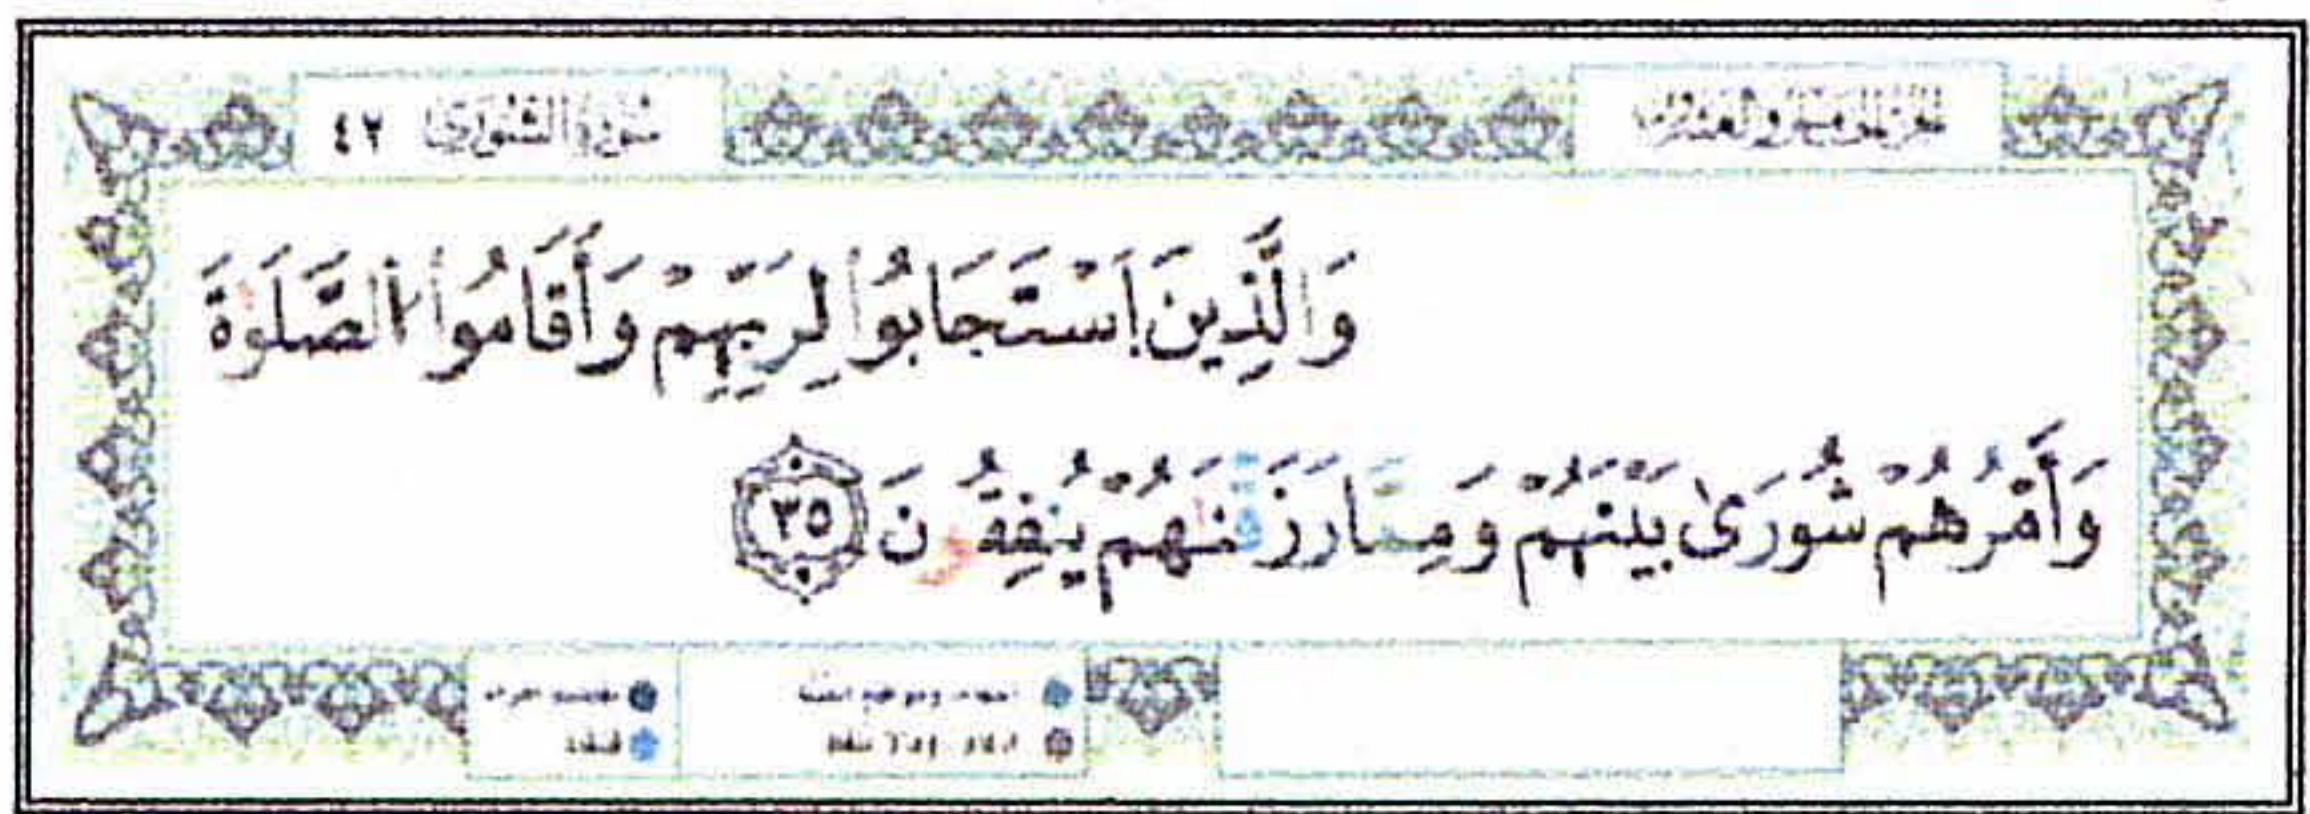 الجزء الخامس والعشرون
سُورَةُ الشُّورَىٰ ٤٢
وَالَّذِينَ اَسْتَجَابُوا لِرَبِّهِمْ وَأَقَامُوا اُلصَّلَوٰةَ
وَأَمْرُهُمْ شُورَىٰ بَيْنَهُمْ وَمِمَّا رَزَقْنَٰهُمْ يُنفِقُونَ ٣٥
قلقلة